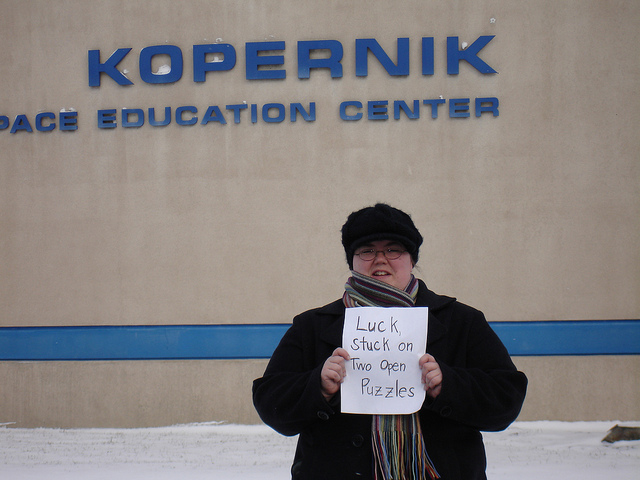 KOPERNIK
PACE EDUCATION CENTER
Luck,
stuck on
Two Open
Puzzles